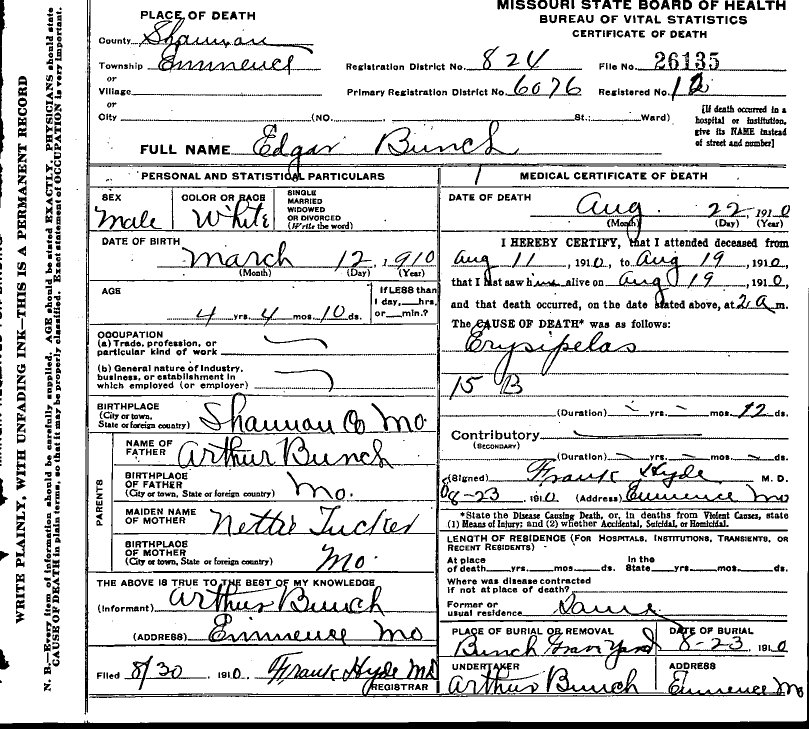 MISSOURI STATE BOARD OF HEALTH
BUREAU OF VITAL STATISTICS
CERTIFICATE OF DEATH
PLACE OF DEATH
County Shannon
Township Eminence
or
Village
or
City (NO. St.; Ward)
Registration District No. 824 File No. 26135
Primary Registration District No. 6076 Registered No. 12
[If death occurred in a
hospital or institution,
give its NAME instead
of street and number]
FULL NAME Edgar Bunch
PERSONAL AND STATISTICAL PARTICULARS
SEX
Male
COLOR OR RACE
White
SINGLE
MARRIED
WIDOWED
OR DIVORCED
(Write the word)
DATE OF BIRTH
March 12, 1910
(Month) (Day) (Year)
AGE
4 yrs. 4 mos. 10 ds.
If LESS than
1 day, hrs.
or min.?
OCCUPATION
(a) Trade, profession, or
particular kind of work
(b) General nature of industry,
business, or establishment in
which employed (or employer)
BIRTHPLACE
(City or town,
State or foreign country)
Shannon Co Mo.
PARENTS
NAME OF
FATHER
Arthur Bunch
BIRTHPLACE
OF FATHER
(City or town, State or foreign country)
Mo.
MAIDEN NAME
OF MOTHER
Nettie Tucker
BIRTHPLACE
OF MOTHER
(City or town, State or foreign country)
Mo.
THE ABOVE IS TRUE TO THE BEST OF MY KNOWLEDGE
(Informant) Arthur Bunch
(ADDRESS) Eminence Mo
Filed 8/30, 1910, Frank Hyde MD
REGISTRAR
MEDICAL CERTIFICATE OF DEATH
DATE OF DEATH
Aug. 22, 1910
(Month) (Day) (Year)
I HEREBY CERTIFY, that I attended deceased from
Aug 11, 1910, to Aug 19, 1910,
that I last saw him alive on Aug 19, 1910,
and that death occurred, on the date stated above, at 2 a m.
The CAUSE OF DEATH* was as follows:
Erysipelas
15 B
(Duration) - yrs. - mos. 12 ds.
Contributory
(SECONDARY)
(Duration) - yrs. - mos. - ds.
(Signed) Frank Hyde M. D.
8-23, 1910 (Address) Eminence Mo
*State the Disease Causing Death, or, in deaths from Violent Causes, state
(1) Means of Injury; and (2) whether Accidental, Suicidal, or Homicidal.
LENGTH OF RESIDENCE (FOR HOSPITALS, INSTITUTIONS, TRANSIENTS, OR
RECENT RESIDENTS)
At place
of death yrs. mos. ds.
In the
State yrs. mos. ds.
Where was disease contracted
if not at place of death?
Former or
usual residence Same
PLACE OF BURIAL OR REMOVAL
Bunch Grave Yard
DATE OF BURIAL
8-23, 1910
UNDERTAKER
Arthur Bunch
ADDRESS
Eminence Mo
WRITE PLAINLY, WITH UNFADING INK—THIS IS A PERMANENT RECORD
N. B.—Every item of information should be carefully supplied. AGE should be stated EXACTLY. PHYSICIANS should state
CAUSE OF DEATH in plain terms, so that it may be properly classified. Exact statement of OCCUPATION is very important.